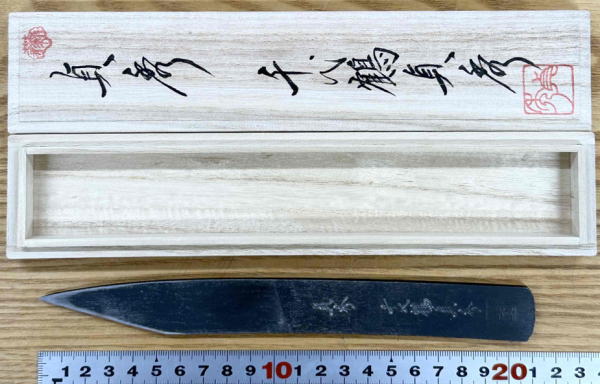 貞秀 千代鶴貞秀
貞秀 千代鶴貞秀
1 2 3 4 5 6 7 8 9 10 1 2 3 4 5 6 7 8 9 20 1 2 3